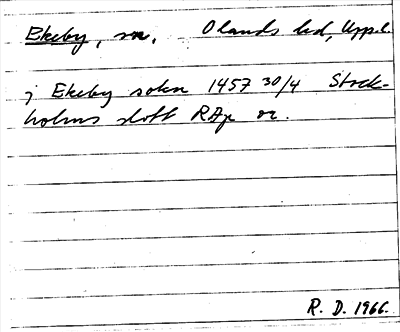 Ekeby, sn, Olands hd, Uppl.
j Ekeby sokn 1457 30/4 Stock-
holms slott RAp or.
R. D. 1966.